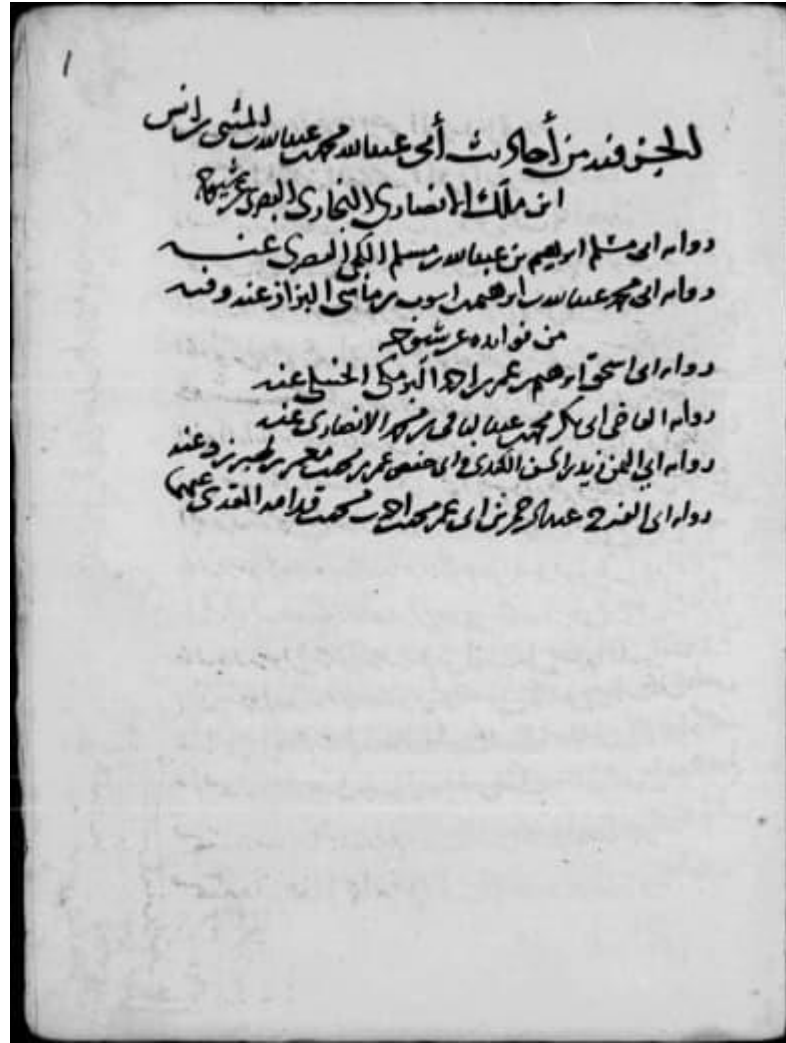 1
الجزء فيه من أحاديث أبي عبد الله محمد بن عبد الله بن المثنى بن أنس
ابن ملك الانصاري النجاري البصري عن شيوخه
رواية ابي مسلم ابراهيم بن عبد الله بن مسلم الكجي البصري عنه
رواية ابي محمد عبد الله بن ابرهيم بن ايوب بن ماسي البزاز عنه وفيه
من فوايده عن شيوخه
رواية ابي اسحق ابرهيم بن عمر بن احمد البرمكي الحنبلي عنه
رواية القاضي ابي بكر محمد بن عبد الباقي بن محمد الانصاري عنه
رواية ابي اليمن زيد بن الحسن الكندي وابي حفص عمر بن محمد بن معمر بن طبرزد عنه
رواية ابي الفرج عبد الرحمن بن ابي عمر محمد بن احمد بن محمد بن قدامه المقدسي عنهما